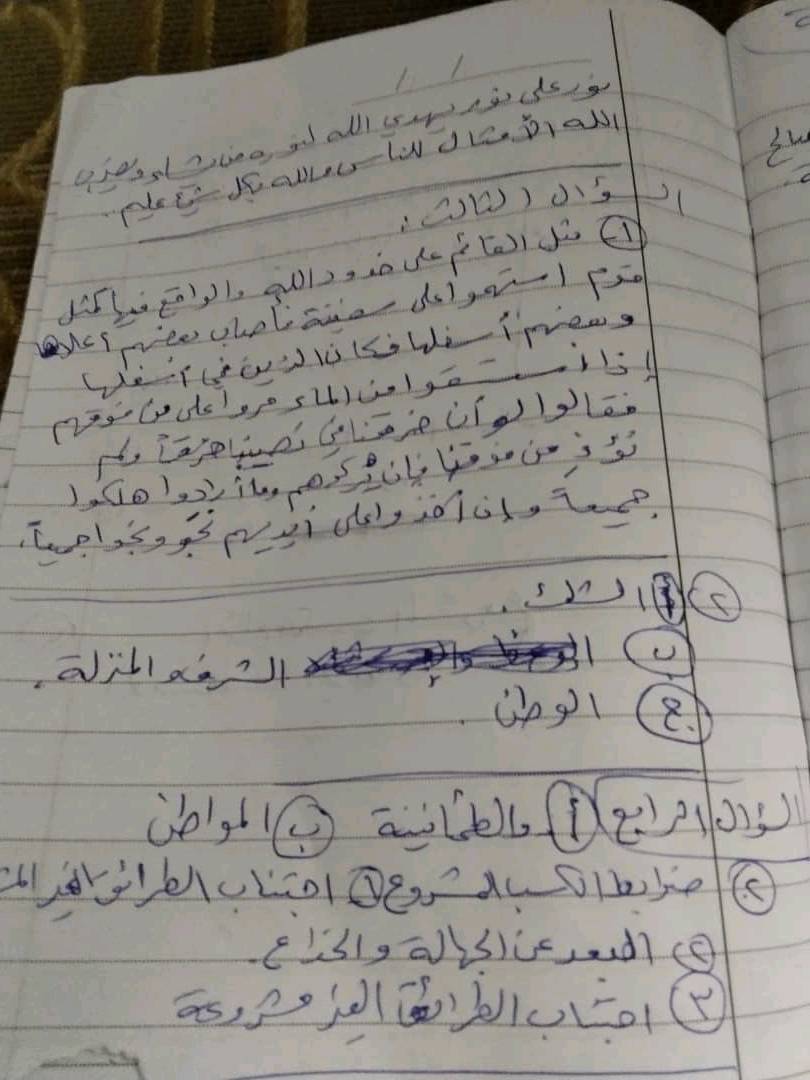 نور على نور يهدي الله لنوره من يشاء ويضرب
الله الأمثال للناس والله بكل شيء عليم.
السؤال الثالث:
١- مثل القائم على حدود الله والواقع فيها كمثل
قوم استهموا على سفينة فأصاب بعضهم أعلاها
وبعضهم أسفلها فكان الذين في أسفلها
إذا استقوا من الماء مروا على من فوقهم
فقالوا لو أن خرقنا في نصيبنا خرقاً ولم
نؤذِ من فوقنا فإن يتركوهم وما أرادوا هلكوا
جميعاً وإن أخذوا على أيديهم نجو ونجوا جميعاً.
٢- أ الشك.
ب الشرف والمنزلة.
ج الوطن.
السؤال الرابع أ والطمأنينة ب المواطن
٢- ضوابط الكسب المشروع ١ اجتناب الطرائق الغير
٢ البعد عن الجهالة والخداع.
٣ اجتناب الطرائق الغير مشروعة